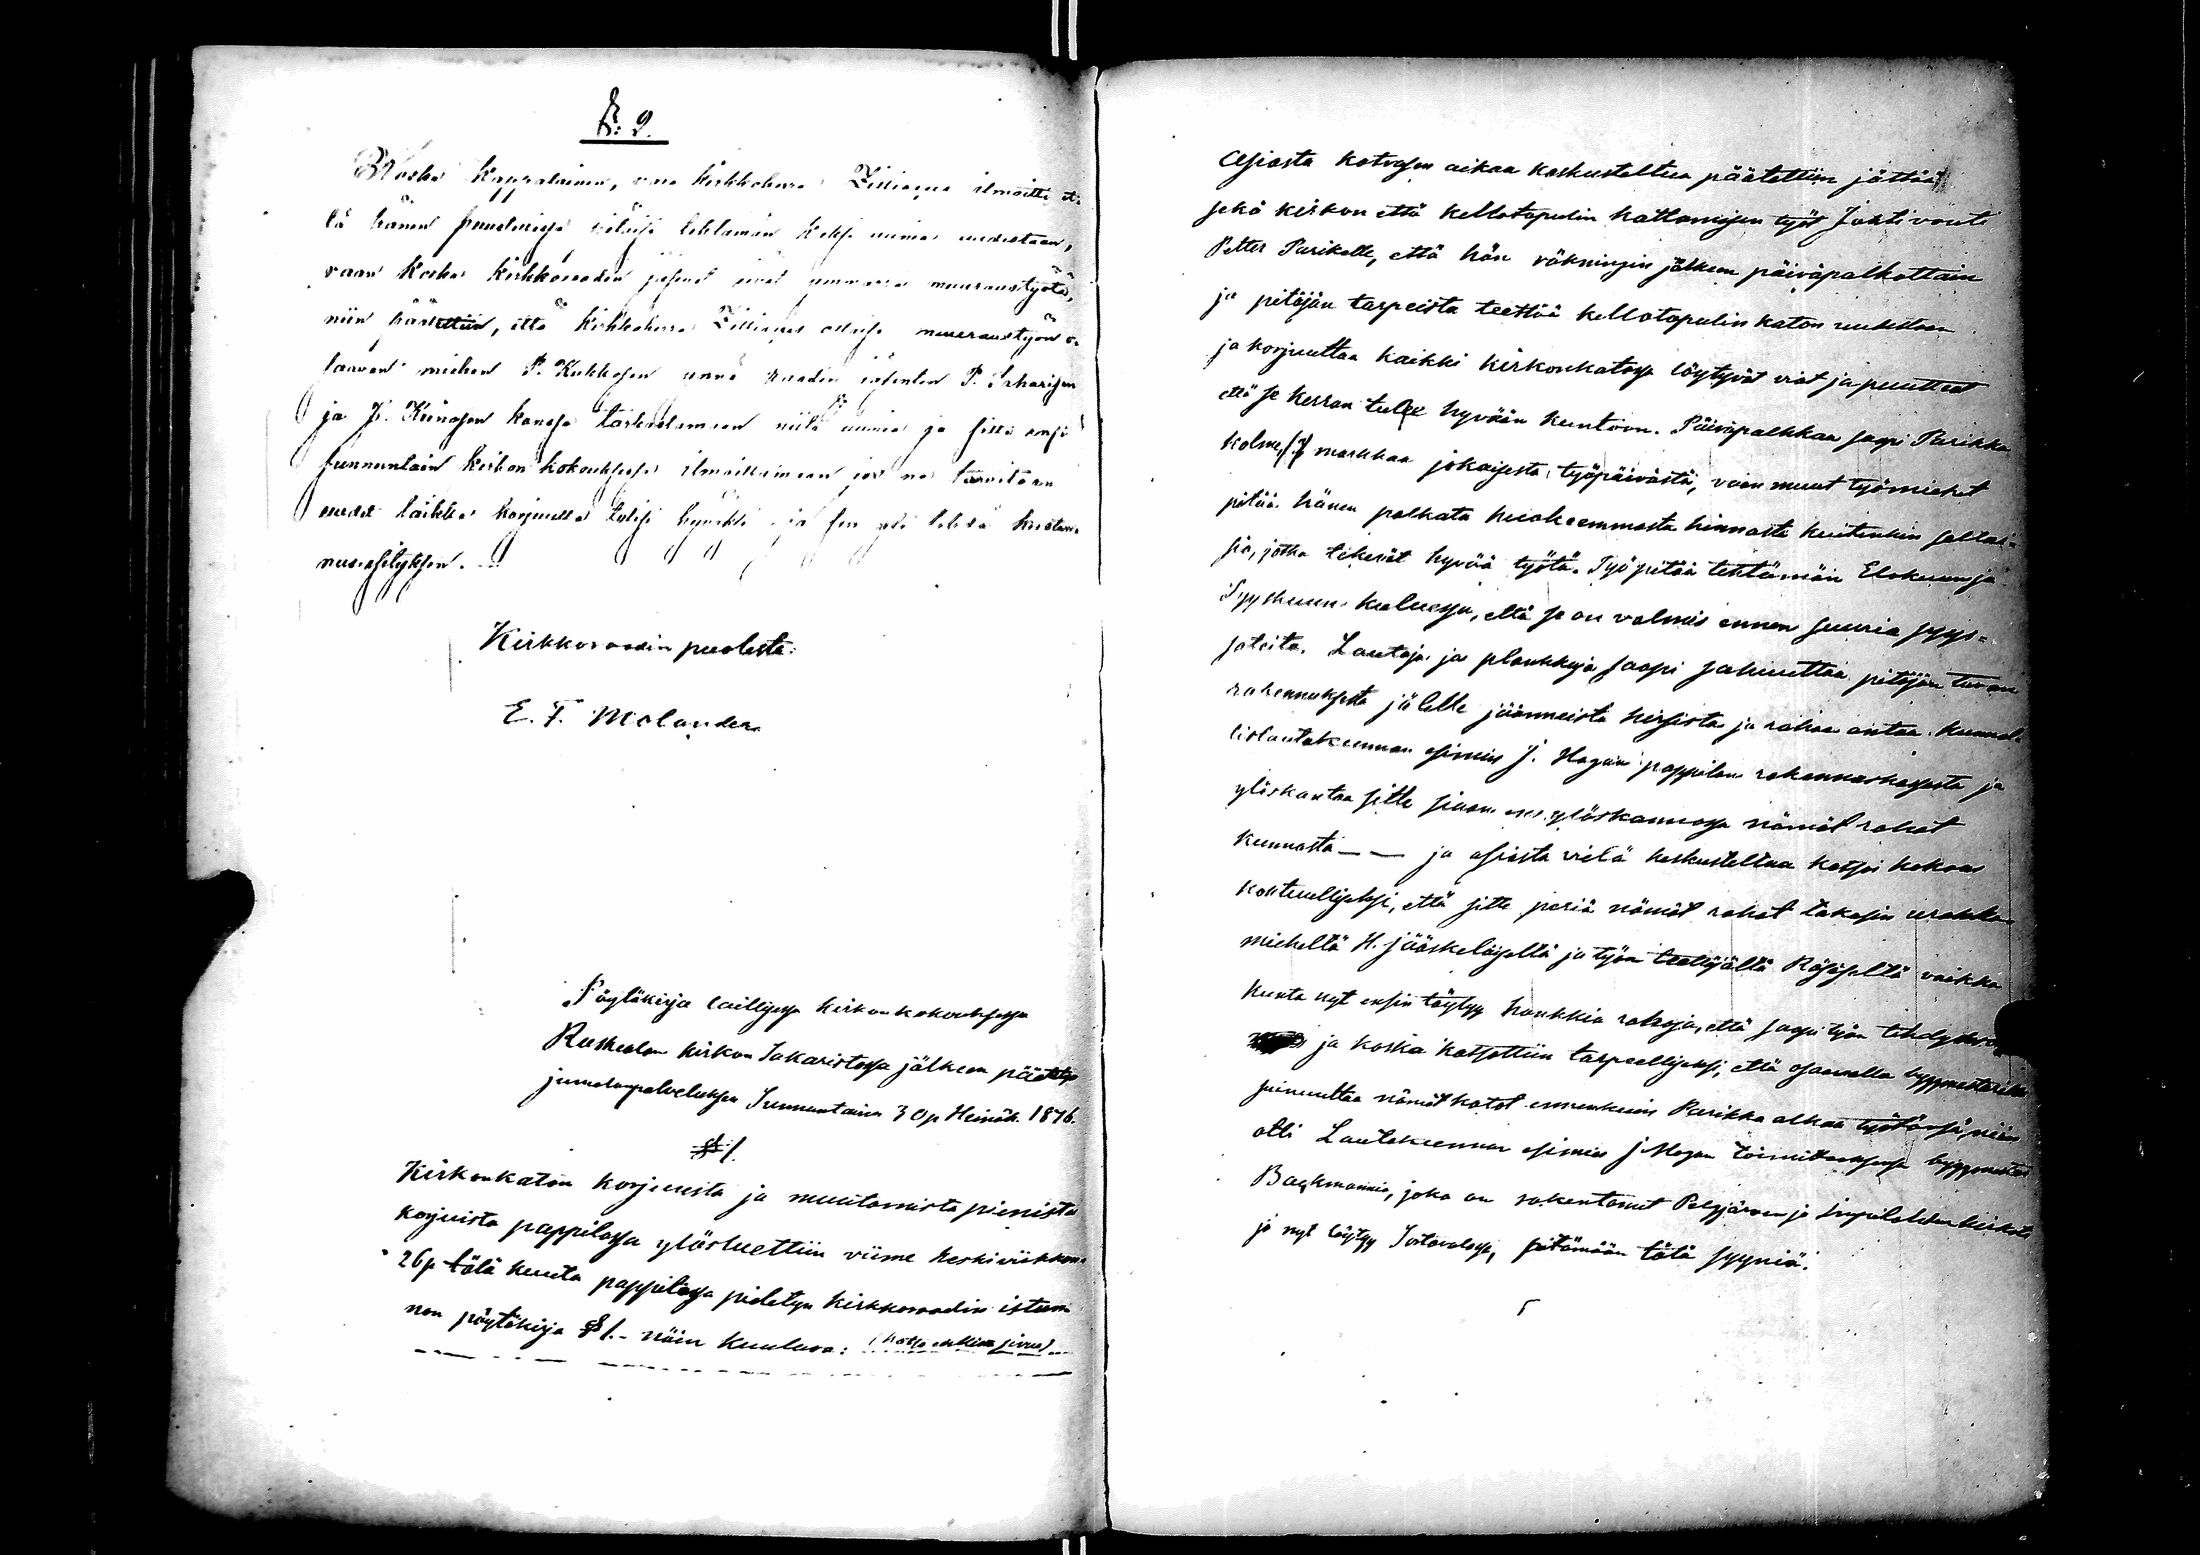 §: 2.
Koska Kappalainen, vara kirkkoherra Zilliacus ilmoitti et-
tä hänen huoneissa tulisi tehtämän kaksi uunia uudestaan,
vaan koska kirkkoraadin jäsenet eivät ymmärrä muuraustyötä,
niin päätettiin, että kirkkoherra Zilliacus ottaisi muuraustyön o-
saavan miehen P. Kukkosen ynnä raadin jäsenten P. Saharisen
ja J. Kiinasen kanssa tarkastamaan niitä uunia ja sitte ensi
sunnuntain kirkon kokouksessa ilmoittamaan jos ne tarvitaan
uudet taikka korjuulla tulisi hyväksi ja sen yli tehdä kustan-
nusesityksen.
Kirkkoraadin puolesta:
E. F. Molander
Pöytäkirja laillisessa kirkonkokouksessa
Ruskealan kirkon Sakaristossa jälkeen päätetyn
jumalanpalveluksen Sunnuntaina 30 p Heinäk. 1876.
§ 1.
Kirkonkaton korjuusta ja muutamista pienistä
korjuista pappilassa ylösluettiin viime keskiviikkona
26 p tätä kuuta pappilassa pidetyn kirkkoraadin istun
non pöytäkirja § 1. näin kuuluva: (katso edellinen sivu)
Asiasta kotvasen aikaa keskusteltua päätettiin jättää
sekä kirkon että kellotapulin kattamisen työt Jahtivouti
Petter Parikalle, että hän räkningin jälkeen päiväpalkottain
ja pitäjän tarpeista teettää kellotapulin katon uudestaan
ja korjuuttaa kaikki kirkonkatossa löytyvät viat ja puutteet
että se kerran tulee hyvään kuntoon. Päiväpalkkaa saapi Parikka
kolme (3) markkaa jokaisesta työpäivästä, vaan muut työmiehet
pitää hänen palkata huokeemmasta hinnasta kuitenkin sellai-
sia, jotka tekevät hyvää työtä. Työ pitää tehtämän Elokuun ja
Syyskuun kuluessa, että se on valmis ennen suuria syys-
sateita. Lautoja ja plankkuja saapi sahuuttaa pitäjän tuvan
rakennuksesta jälelle jääneistä hirsistä ja rahaa antaa kunnal
lislautakunnan esimies J. Hagan pappilan rakennuskassasta ja
ylöskantaa sitte siaan ylöskannossa nämät rahat
kunnasta — — ja asiasta vielä keskusteltua katsoi kokous
kohtuulliseksi, että sitte periä nämät rahat takasin urakka-
mieheltä H. Jääskeläiseltä ja työn teettäjältä Räsäseltä vaikka
kunta nyt ensin täytyy hankkia rahoja, että saapi työn tehdyksi
ja koska katsottiin tarpeelliseksi, että osaavalla byggmestarilla
syinuuttaa nämät katot ennenkuin Parikka alkaa työtänsä, niin
otti Lautakunnan esimies J Hagan toimittaaksensa byggmestari
Backmannia, joka on rakentanut Pelgjärven ja Impilahden kirkot
ja nyt löytyy Sortavalassa, pitämään tätä syyniä.